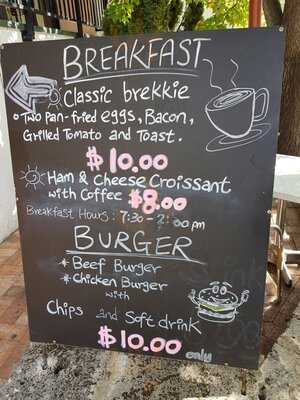 BREAKFAST
Classic brekkie
Two pan-fried eggs, Bacon,
Grilled Tomato and Toast.
$10.00
Ham & Cheese Croissant
with Coffee $8.00
Breakfast Hours: 7:30 - 2:00 pm
BURGER
* Beef Burger
* Chicken Burger
with
Chips and Soft drink
$10.00 only